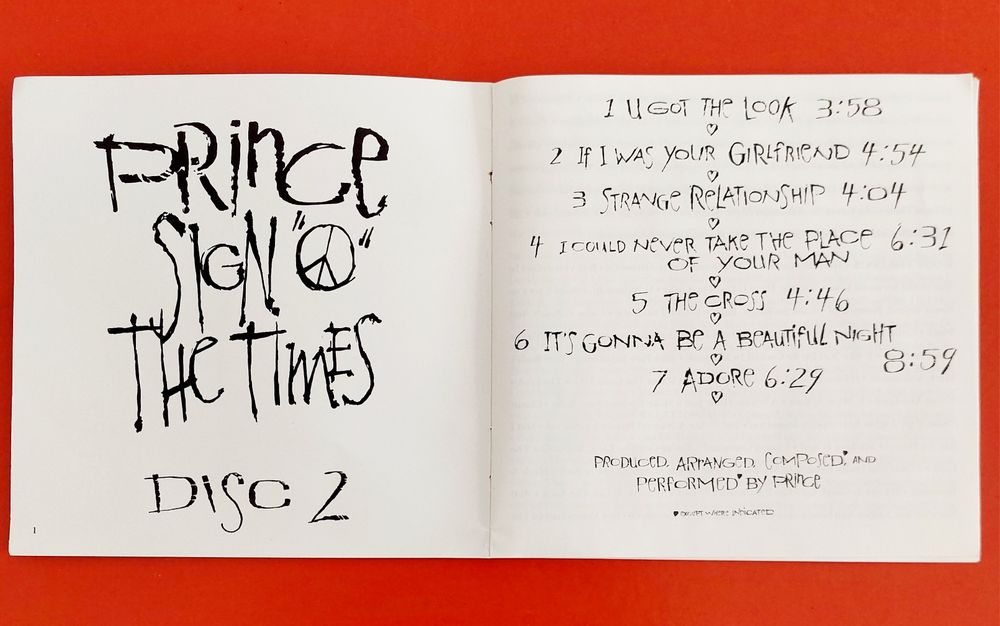 PRINCE
SIGN "☮"
THE TIMES
DISC 2
1
1 U GOT THE LOOK 3:58
♡
2 If I WAS YOUR GIRLFRIEND 4:54
♡
3 STRANGE RELATIONSHIP 4:04
♡
4 I COULD NEVER TAKE THE PLACE 6:31
OF YOUR MAN
♡
5 THE CROSS 4:46
♡
6 IT'S GONNA BE A BEAUTIFUL NIGHT
8:59
♡
7 ADORE 6:29
♡
PRODUCED, ARRANGED, COMPOSED♥ AND
PERFORMED♥ BY PRINCE
♥ EXCEPT WHERE INDICATED